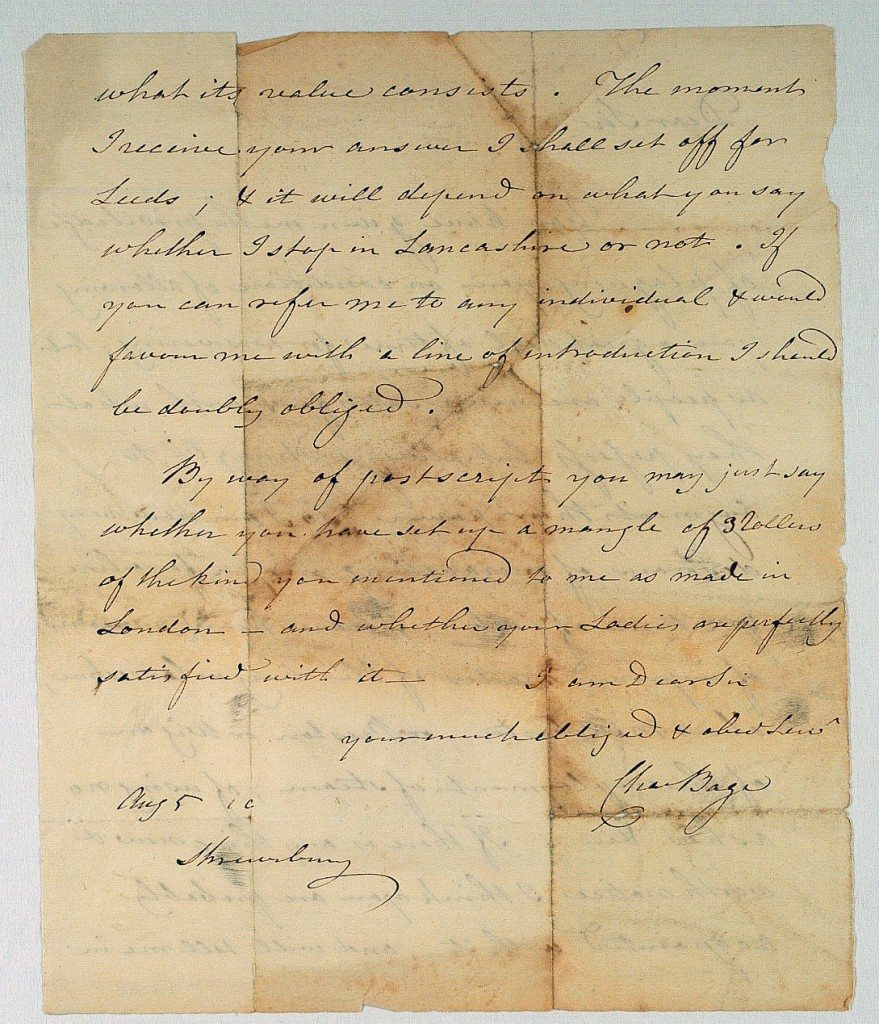 what its value consists. The moment
I receive your answer I shall set off for
Leeds; & it will depend on what you say
whether I stop in Lancashire or not. If
you can refer me to any individual & would
favour me with a line of introduction I should
be doubly obliged.
By way of postscript you may just say
whether you have set up a mangle of 3 Rollers
of the kind you mentioned to me as made in
London – and whether your Ladies are perfectly
satisfied with it – I am Dear Sir
your much obliged & obed Serv
Chas Bage
Aug 5 16
Shrewsbury